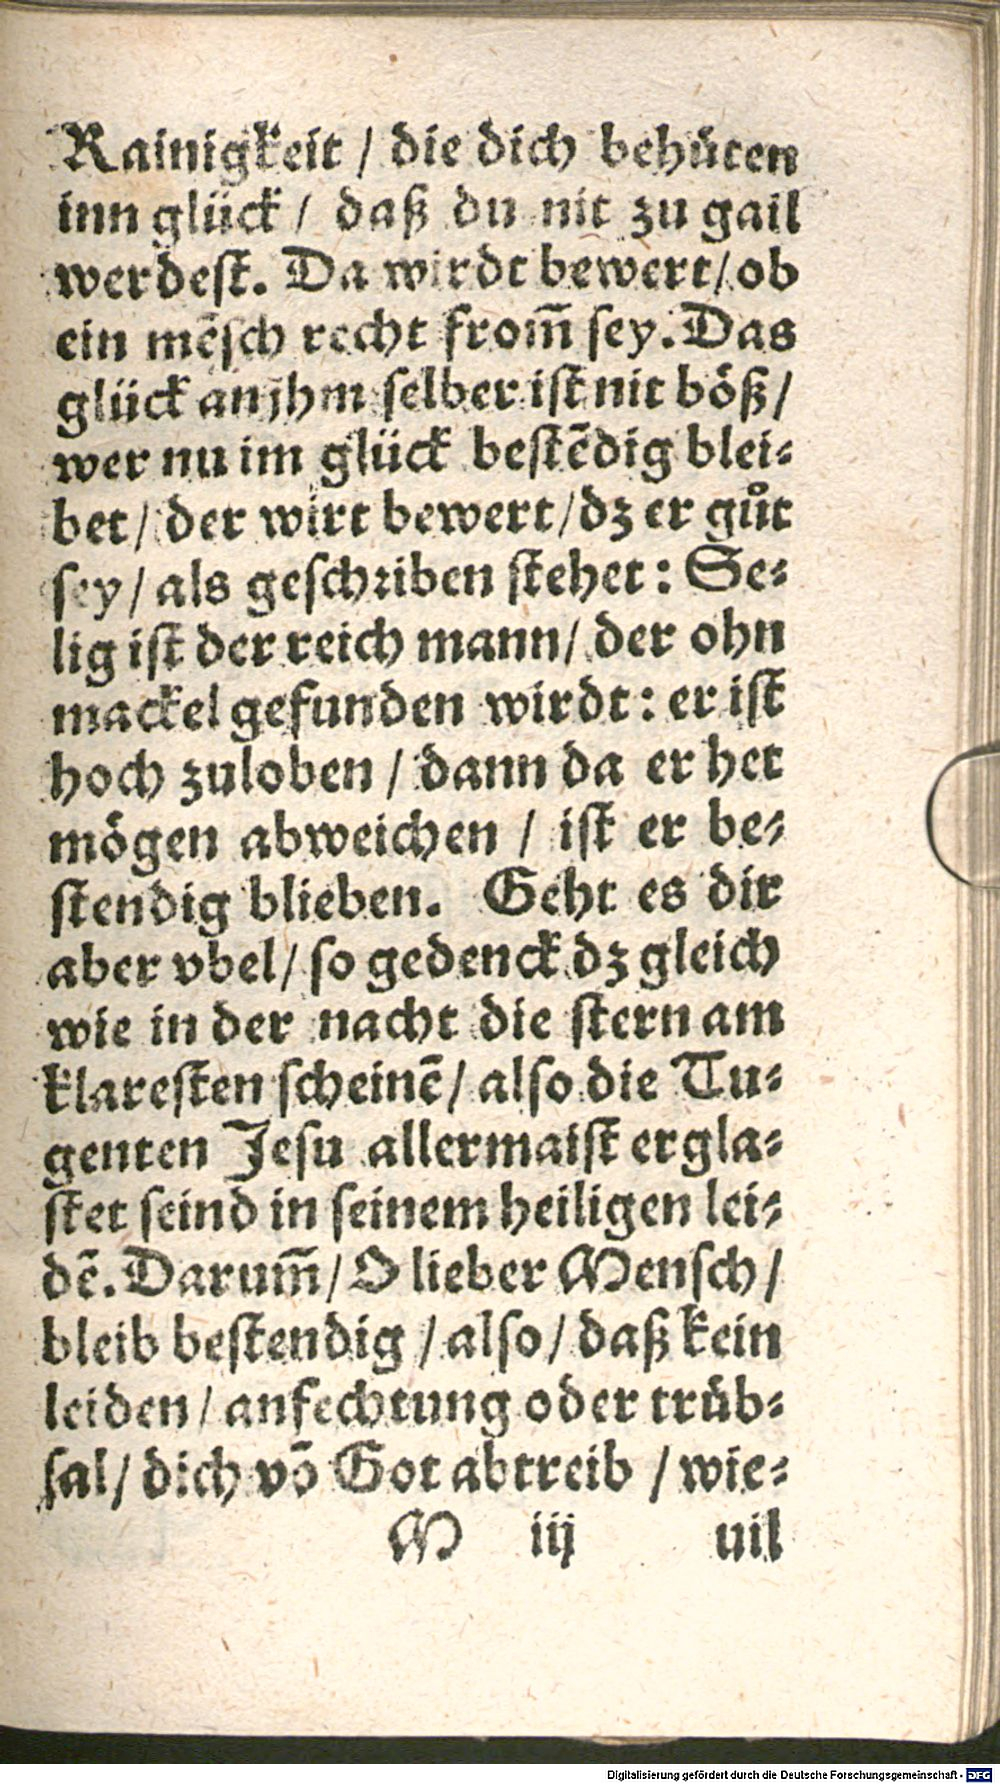 Rainigkeit / die dich behüten
inn glück / daß du nit zu gail
werdest. Da wirdt bewert / ob
ein mẽsch recht from̃ sey. Das
glück an jhm selber ist nit böß /
wer nu im glück bestẽdig blei-
bet / der wirt bewert / dz er gůt
sey / als geschriben stehet : Se-
lig ist der reich mann / der ohn
mackel gefunden wirdt : er ist
hoch zuloben / dann da er het
mögen abweichen / ist er be-
stendig blieben. Geht es dir
aber vbel / so gedenck dz gleich
wie in der nacht die stern am
klaresten scheinẽ / also die Tu-
genten Jesu allermaist ergla-
stet seind in seinem heiligen lei-
dẽ. Darum̃ / O lieber Mensch /
bleib bestendig / also / daß kein
leiden / anfechtung oder trüb-
sal / dich võ Got abtreib / wie-
M iij uil
Digitalisierung gefördert durch die Deutsche Forschungsgemeinschaft - DFG